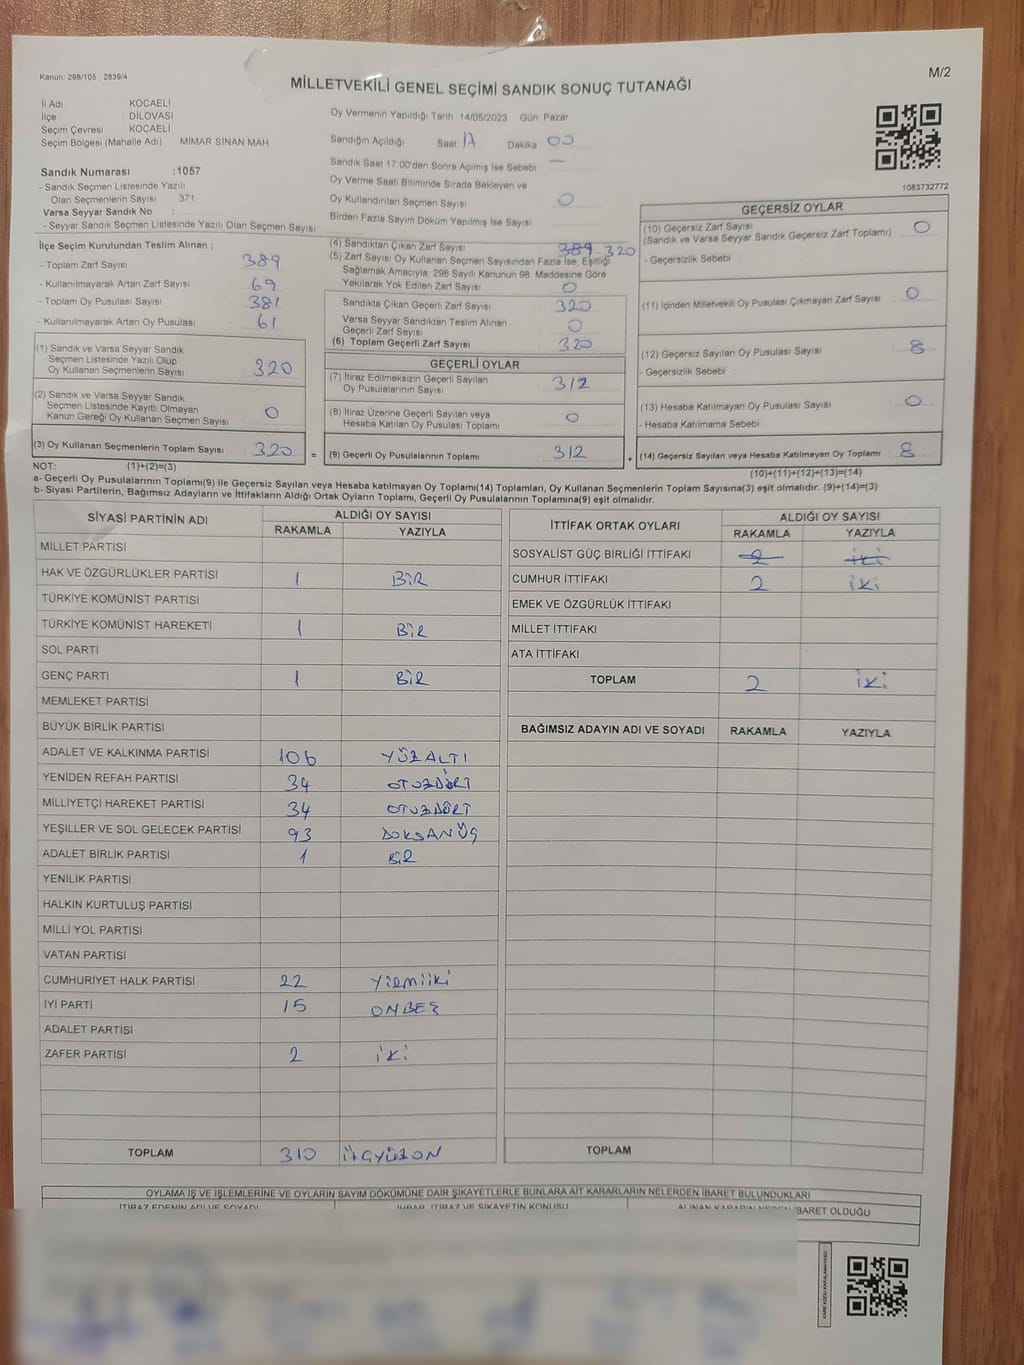 Kanun; 298/105 , 2839/4
M/2
MİLLETVEKİLİ GENEL SEÇİMİ SANDIK SONUÇ TUTANAĞI
İl Adı : KOCAELİ
İlçe : DİLOVASI
Seçim Çevresi : KOCAELİ
Seçim Bölgesi (Mahalle Adı) : MİMAR SİNAN MAH
Sandık Numarası :1057
- Sandık Seçmen Listesinde Yazılı
Olan Seçmenlerin Sayısı : 371
Varsa Seyyar Sandık No :
- Seyyar Sandık Seçmen Listesinde Yazılı Olan Seçmen Sayısı:
Oy Vermenin Yapıldığı Tarih :14/05/2023 Gün: Pazar
Sandığın Açıldığı Saat: 17 Dakika: 00
Sandık Saat 17:00'den Sonra Açmış İse Sebebi : —
Oy Verme Saati Bitiminde Sırada Bekleyen ve
Oy Kullandırılan Seçmen Sayısı : 0
Birden Fazla Sayım Döküm Yapılmış İse Sayısı :
1083732772
İlçe Seçim Kurulundan Teslim Alınan ;
- Toplam Zarf Sayısı : 389
- Kullanılmayarak Artan Zarf Sayısı : 69
- Toplam Oy Pusulası Sayısı : 381
- Kullanılmayarak Artan Oy Pusulası : 61
(1) Sandık ve Varsa Seyyar Sandık
Seçmen Listesinde Yazılı Olup
Oy Kullanan Seçmenlerin Sayısı : 320
(2) Sandık ve Varsa Seyyar Sandık
Seçmen Listesinde Kayıtlı Olmayan
Kanun Gereği Oy Kullanan Seçmen Sayısı : 0
(3) Oy Kullanan Seçmenlerin Toplam Sayısı : 320 =
(4) Sandıktan Çıkan Zarf Sayısı : 389 320
(5) Zarf Sayısı Oy Kullanan Seçmen Sayısından Fazla İse, Eşitliği
Sağlamak Amacıyla, 298 Sayılı Kanunun 98. Maddesine Göre
Yakılarak Yok Edilen Zarf Sayısı : 0
Sandıkta Çıkan Geçerli Zarf Sayısı : 320
Varsa Seyyar Sandıktan Teslim Alınan
Geçerli Zarf Sayısı : 0
(6) Toplam Geçerli Zarf Sayısı : 320
GEÇERLİ OYLAR
(7) İtiraz Edilmeksizin Geçerli Sayılan
Oy Pusulalarının Sayısı : 312
(8) İtiraz Üzerine Geçerli Sayılan veya
Hesaba Katılan Oy Pusulası Toplamı : 0
(9) Geçerli Oy Pusulalarının Toplamı : 312 +
GEÇERSİZ OYLAR
(10) Geçersiz Zarf Sayısı : 0
(Sandık ve Varsa Seyyar Sandık Geçersiz Zarf Toplamı)
- Geçersizlik Sebebi :
(11) İçinden Milletvekili Oy Pusulası Çıkmayan Zarf Sayısı : 0
(12) Geçersiz Sayılan Oy Pusulası Sayısı : 8
- Geçersizlik Sebebi :
(13) Hesaba Katılmayan Oy Pusulası Sayısı : 0
- Hesaba Katılmama Sebebi :
(14) Geçersiz Sayılan veya Hesaba Katılmayan Oy Toplamı : 8
NOT: (1)+(2)=(3) (10)+(11)+(12)+(13)=(14)
a- Geçerli Oy Pusulalarının Toplamı(9) ile Geçersiz Sayılan veya Hesaba katılmayan Oy Toplamı(14) Toplamları, Oy Kullanan Seçmenlerin Toplam Sayısına(3) eşit olmalıdır. (9)+(14)=(3)
b- Siyasi Partilerin, Bağımsız Adayların ve İttifakların Aldığı Ortak Oyların Toplamı, Geçerli Oy Pusulalarının Toplamına(9) eşit olmalıdır.
SİYASİ PARTİNİN ADI ALDIĞI OY SAYISI
RAKAMLA YAZIYLA
MİLLET PARTİSİ
HAK VE ÖZGÜRLÜKLER PARTİSİ 1 BİR
TÜRKİYE KOMÜNİST PARTİSİ
TÜRKİYE KOMÜNİST HAREKETİ 1 BİR
SOL PARTİ
GENÇ PARTİ 1 BİR
MEMLEKET PARTİSİ
BÜYÜK BİRLİK PARTİSİ
ADALET VE KALKINMA PARTİSİ 106 YÜZALTI
YENİDEN REFAH PARTİSİ 34 OTUZDÖRT
MİLLİYETÇİ HAREKET PARTİSİ 34 OTUZDÖRT
YEŞİLLER VE SOL GELECEK PARTİSİ 93 DOKSANÜÇ
ADALET BİRLİK PARTİSİ 1 BİR
YENİLİK PARTİSİ
HALKIN KURTULUŞ PARTİSİ
MİLLİ YOL PARTİSİ
VATAN PARTİSİ
CUMHURİYET HALK PARTİSİ 22 YİRMİİKİ
İYİ PARTİ 15 ONBEŞ
ADALET PARTİSİ
ZAFER PARTİSİ 2 İKİ
TOPLAM 310 ÜÇYÜZON
İTTİFAK ORTAK OYLARI ALDIĞI OY SAYISI
RAKAMLA YAZIYLA
SOSYALİST GÜÇ BİRLİĞİ İTTİFAKI 2 İKİ
CUMHUR İTTİFAKI 2 İKİ
EMEK VE ÖZGÜRLÜK İTTİFAKI
MİLLET İTTİFAKI
ATA İTTİFAKI
TOPLAM 2 İKİ
BAĞIMSIZ ADAYIN ADI VE SOYADI RAKAMLA YAZIYLA
TOPLAM
OYLAMA İŞ VE İŞLEMLERİNE VE OYLARIN SAYIM DÖKÜMÜNE DAİR ŞİKAYETLERLE BUNLARA AİT KARARLARIN NELERDEN İBARET BULUNDUKLARI
İTİRAZ EDENİN ADI VE SOYADI İHBAR, İTİRAZ VE ŞİKAYETİN KONUSU ALINAN KARARIN NEDEN İBARET OLDUĞU
KARE KODU KARALAMAYINIZ